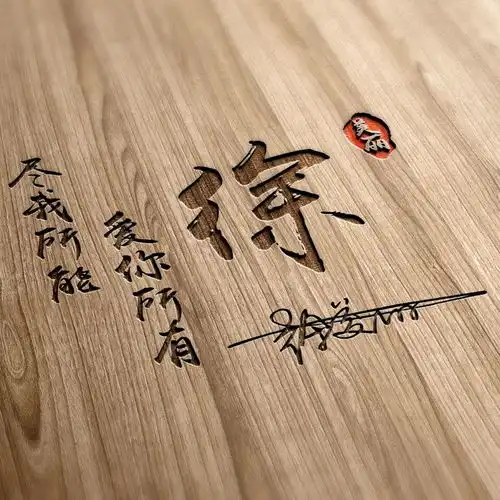 徐
尽我所能
爱你所有